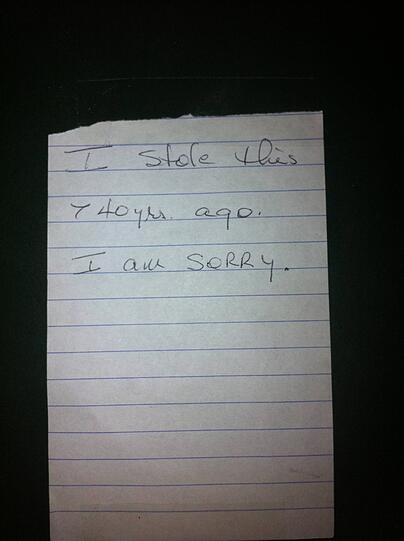 I stole this
> 40yrs. ago.
I am SORRY.